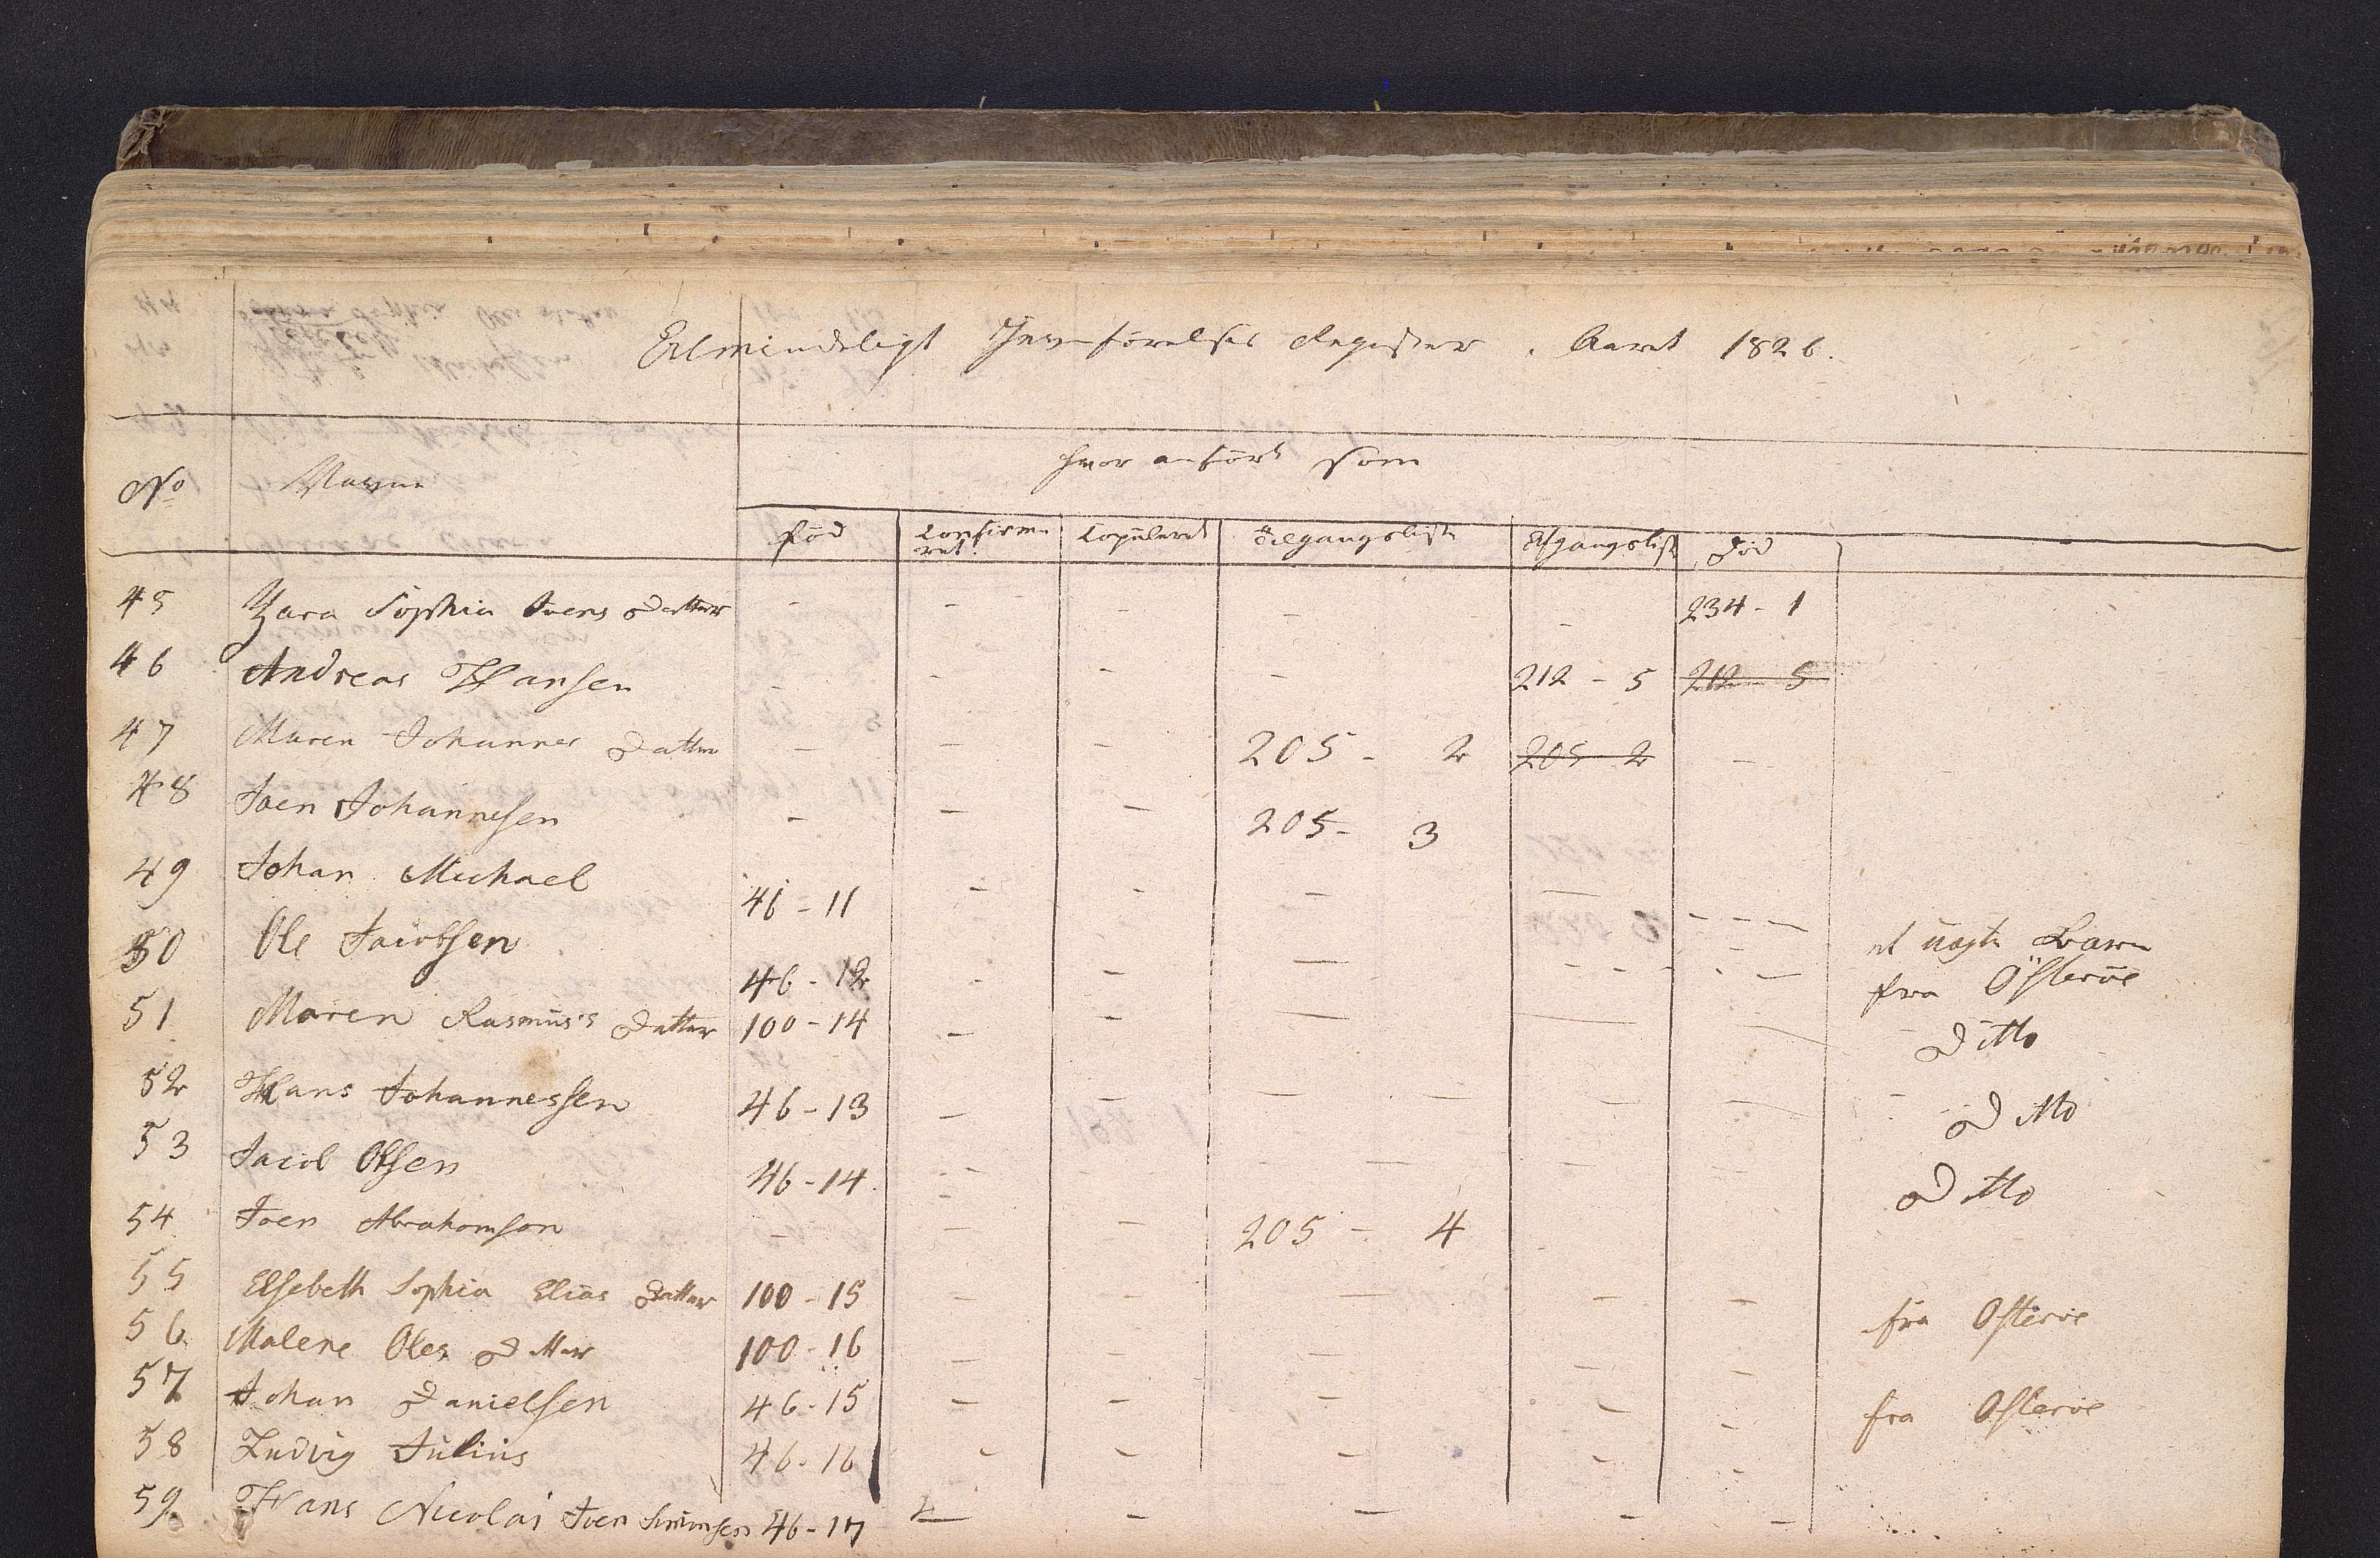 Almindeligt Jevnførelses Register. Aaret 1826.
No Navne hvor anført som
Fød Confirme- Copuleret Tilgangsliste Afgangsliste Død
ret.
45 Zara Sophia Joens Datter - - - - - 234 - 1
46 Andreas Hansen - - - - 212 - 5 212 5
47 Maren Johannes Datter - - - 205 - 2 205 2 -
48 Joen Johannesen - - - 205 - 3
49 Johan Michael 46 - 11 - - - - - - - et uægte Barn
50 Ole Jacobsen 46 - 12 - - - - - - - - fra Østerøe
51 Maren Rasmus's Datter 100 - 14 - - - - - Ditto
52 Hans Johannessen 46 - 13 - - - - - - Ditto
53 Jacob Olsen 46 - 14 - - - - - Ditto
54 Joen Abrahamson - - - 205 - 4 -
55 Elsebeth Sophia Elias Datter 100 - 15 - - - - - fra Østerøe
56 Malene Oles Datter 100 - 16 - - - - -
57 Johan Danielsen 46 - 15 - - - - - fra Østerøe
58 Ludvig Julius 46 - 16 - - - - -
59 Hans Nicolai Joen Simonsen 46 - 17 - - - - -